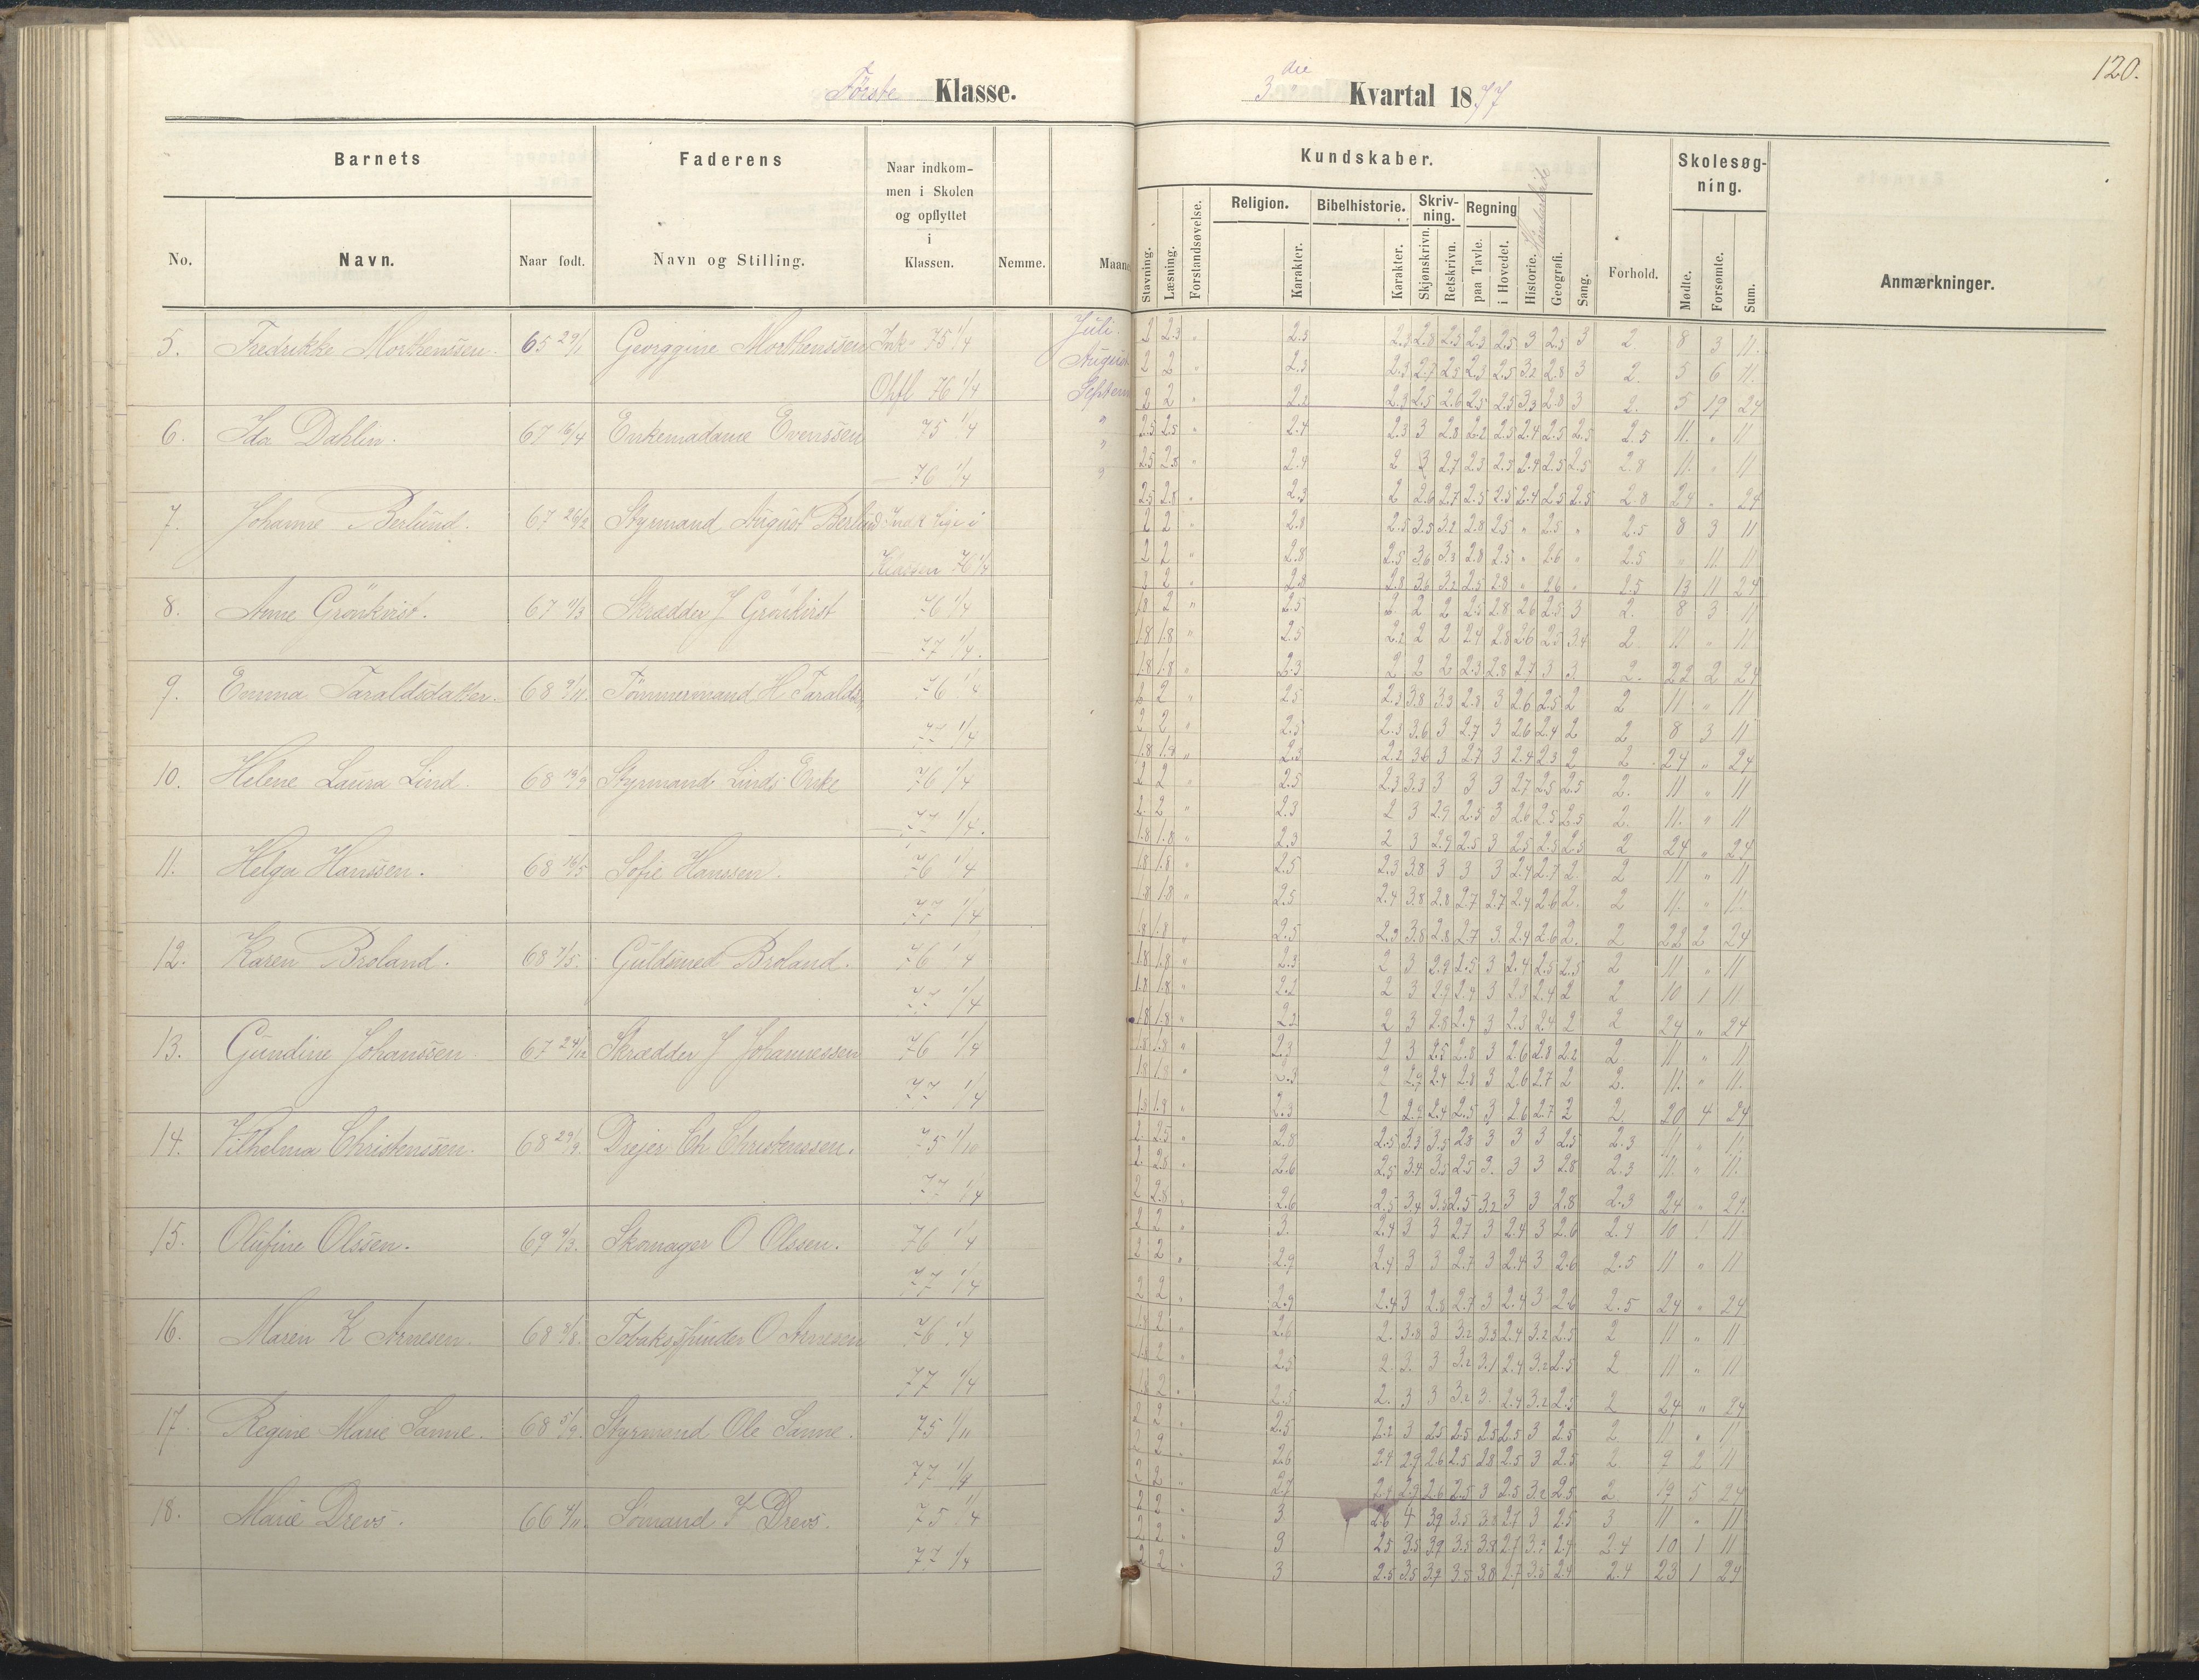 120.
Første Klasse.
3die Kvartal 1877
Barnets
Faderens
Naar indkom-
men i Skolen
og opflyttet
i
Klassen.
No.
Navn.
Naar født.
Navn og Stilling.
Nemme.
Maaned
Kundskaber.
Stavning.
Læsning.
Forstandsøvelse.
Religion.
Karakter.
Bibelhistorie.
Karakter.
Skriv-
ning.
Skjønskrivn.
Retskrivn.
Regning
paa Tavle.
i Hovedet.
Haandarbeide
Historie.
Geografi.
Sang.
Forhold.
Skolesøg-
ning.
Mødte.
Forsømte.
Sum.
Anmærkninger.
5. Fredrikke Morthenssen. 65 29/1 Georggine Morthenssen Ink. 75 1/4 Juli. 2 2.3 " 2.3 2.3 2.8 2.5 2.3 2.5 3 2.5 3 2 8 3 11.
August 2 2 " 2.3 2.3 2.7 2.5 2.3 2.5 3.2 2.8 3 2. 5 6 11.
Opfl 76 1/4 Septem 2 2 " 2.2 2.3 2.5 2.6 2.5 2.5 3.3 2.8 3 2. 5 19 24
6. Ida Dahlin. 67 16/4 Enkemadame Evenssen 75 1/4 " 2.5 2.5 " 2.4 2.3 3 2.8 2.2 2.5 2.4 2.5 2.5 2.5 11. " 11
" 2.5 2.8 " 2.4 2 3 2.7 2.3 2.5 2.4 2.5 2.5 2.8 11. " 11
76 1/4 " 2.5 2.8 " 2.3 2 2.6 2.7 2.5 2.5 2.4 2.5 2.5 2.8 24 " 24
7. Johanne Berlund. 67 26/2 Styrmand August Berlund 2 2 " 2.8 2.5 3.5 3.2 2.8 2.5 " 2.5 " 2.5 8 3 11
Klassen 76 1/4 2 2 " 2.8 2.5 3.6 3.3 2.8 2.5 " 2.6 " 2.5 " 11 11
2 2 " 2.8 2.8 3.6 3.2 2.5 2.8 " 2.6 " 2.5 13 11 24
8. Anne Grönkvist. 67 11/3 Skrædder J Grönkvist 76 1/4 1.8 2 " 2.5 2 2 2 2.5 2.8 2.6 2.5 3 2. 8 3 11
1.8 1.8 " 2.5 2.2 2 2 2.4 2.8 2.6 2.5 3.4 2 11 " 11
77 1/4. 1.8 1.8 " 2.3 2 2 2 2.3 2.8 2.7 3 3 2. 22 2 24
9. Emma Taraldsdatter. 68 9/11. Tömmermand H Taralds. 76 1/4 2 2 " 2.5 2.3 3.8 3.3 2.8 3 2.6 2.5 2 2 11 " 11
77 1/4 2 2 " 2.5 2.3 3.6 3 2.7 3 2.6 2.4 2 2 8 3 11
1.8 1.8 " 2.3 2.2 3.6 3 2.7 3 2.4 2.3 2 2 24 " 24
10. Helene Laura Lind. 68 19/9 Styrmand Linds Enke 76 1/4 2 2 " 2.5 2.3 3.3 3 3 3 2.7 2.5 2.5 2. 11 " 11
2 2 " 2.3 2 3 2.9 2.5 3 2.6 2.5 2.5 2. 11. " 11
77 1/4. 1.8 1.8 " 2.3 2 3 2.9 2.5 3 2.5 2.5 2.5 2 24 " 24
11. Helga Hanssen. 68 16/5 Sofie Hanssen. 76 1/4 1.8 1.8 " 2.5 2.3 3.8 3 3 3 2.4 2.7 2 2 11 " 11
77 1/4 1.8 1.8 " 2.5 2.4 3.8 2.8 2.7 2.7 2.4 2.6 2. 2 11. " 11.
1.8 1.8 " 2.5 2.3 3.8 2.8 2.7 3. 2.4 2.6 2. 2 22 2 24
12. Karen Broland. 68 7/5. Guldsmed Broland. 76 1/4 1.8 1.8 " 2.3 2 3 2.9 2.5 3 2.4 2.5 2.5 2 11 " 11
77 1/4 1.8 1.8 " 2.2 2 3 2.9 2.4 3 2.3 2.4 2 2 10 1 11
1.8 1.8 " 2.2 2 3 2.8 2.4 3 2.3 2.4 2 2 24 " 24
13. Gundine Johanssen 67 24/12 Skrædder J Johannessen 76 1/4 1.8 1.8 " 2.3 2 3 2.5 2.8 3 2.6 2.8 2.2 2 11 " 11
1.8 1.8 " 2.3 2 2.9 2.4 2.8 3 2.6 2.7 2 2. 11. " 11.
77 1/4 1.8 1.8 " 2.3 2 2.9 2.4 2.5 3 2.6 2.7 2 2 20 4 24
14. Vilhelma Christenssen. 68 29/9. Drejer Ch. Christenssen. 75 1/10 2 2.5 " 2.8 2.5 3.3 3.5 2.8 3 3 3 2.5 2.3 11 " 11.
2 2.8 " 2.6 2.5 3.4 3.5 2.5 3. 3 3 2.8 2.3 11. " 11.
77 1/4 2 2.8 " 2.6 2.5 3.4 3.5 2.5 3.2 3 3 2.8 2.3 24 " 24.
15. Olufine Olssen. 69 9/3. Skomager O Olssen. 76 1/4 2 2 " 3. 2.4 3 3 2.7 3 2.4 3 2.6 2.4 10 1 11
2 2 " 2.9 2.4 3 3 2.7 3 2.4 3 2.6 2.5 11 " 11
77 1/4 2 2 " 2.9 2.4 3 2.8 2.7 3 2.4 3 2.6 2.5 24 " 24
16. Maren K Arnesen. 68 8/8. Tobaksspinder O Arnesen 76 1/4 1.8 2 " 2.6 2. 3.8 3 3.2 3.3 2.4 3.2 2.5 2 11 " 11
1.8 2 " 2.5 2 3. 3 3.2 3.1 2.4 3.2 2.5 2 11 " 11
77 1/4 1.8 2 " 2.5 2. 3 3 3.2 3. 2.4 3.2 2.5 2 24 " 24
17. Regine Marie Sanne. 68 5/9. Styrmand Ole Sanne. 75 1/11 2 2 " 2.5 2.2 3 2.5 2.5 2.5 2.5 3 2.5 2 11 " 11
2 2 " 2.6 2.4 2.9 2.6 2.5 2.8 2.5 3 2.5 2. 9 2 11
77 1/4 2 2 " 2.7 2.4 2.9 2.6 2.5 3 2.5 3.2 2.5 2 19 5 24
18. Marie Drevs. 66 4/11. Sömand F Drevs. 75 1/4 2 2 " 3 2.6 4 3.9 3.5 3.8 2.7 3 2.5 3 11 " 11
2 2 " 3 2.5 3.5 3.9 3.5 3.8 2.7 3.2 2.4 2.4 10 1 11
77 1/4 2 2 " 3 2.5 3.5 3.9 3.5 3.8 2.7 3.5 2.4 2.4 23 1 24